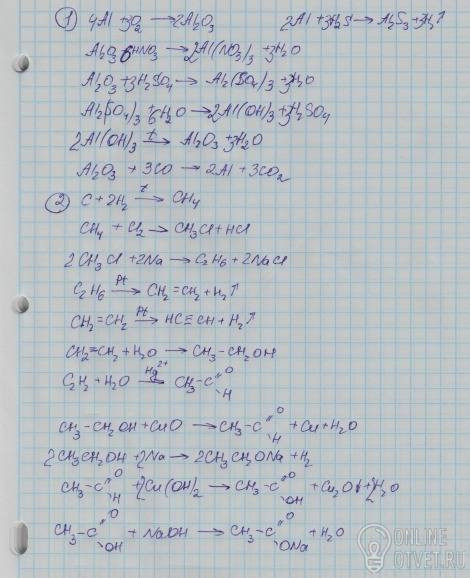 1) 4Al + 3O₂ → 2Al₂O₃ 2Al + 3H₂S → Al₂S₃ + 3H₂↑
Al₂O₃ 6HNO₃ → 2Al(NO₃)₃ + 3H₂O
Al₂O₃ + 3H₂SO₄ → Al₂(SO₄)₃ + 3H₂O
Al₂(SO₄)₃ + 6H₂O → 2Al(OH)₃ + 3H₂SO₄
2Al(OH)₃ →t Al₂O₃ + 3H₂O
Al₂O₃ + 3CO → 2Al + 3CO₂
2) C + 2H₂ →t CH₄
CH₄ + Cl₂ → CH₃Cl + HCl
2CH₃Cl + 2Na → C₂H₆ + 2NaCl
C₂H₆ →Pt CH₂=CH₂ + H₂↑
CH₂=CH₂ →Pt HC≡CH + H₂↑
CH₂=CH₂ + H₂O → CH₃-CH₂OH
C₂H₂ + H₂O →Hg²⁺ CH₃-C=O H
CH₃-CH₂OH + CuO → CH₃-C=O H + Cu + H₂O
2CH₃CH₂OH + 2Na → 2CH₃CH₂ONa + H₂
CH₃-C=O H + 2Cu(OH)₂ → CH₃-C=O OH + Cu₂O↓ + 2H₂O
CH₃-C=O OH + NaOH → CH₃-C=O ONa + H₂O
ONLINE
OTVET.RU